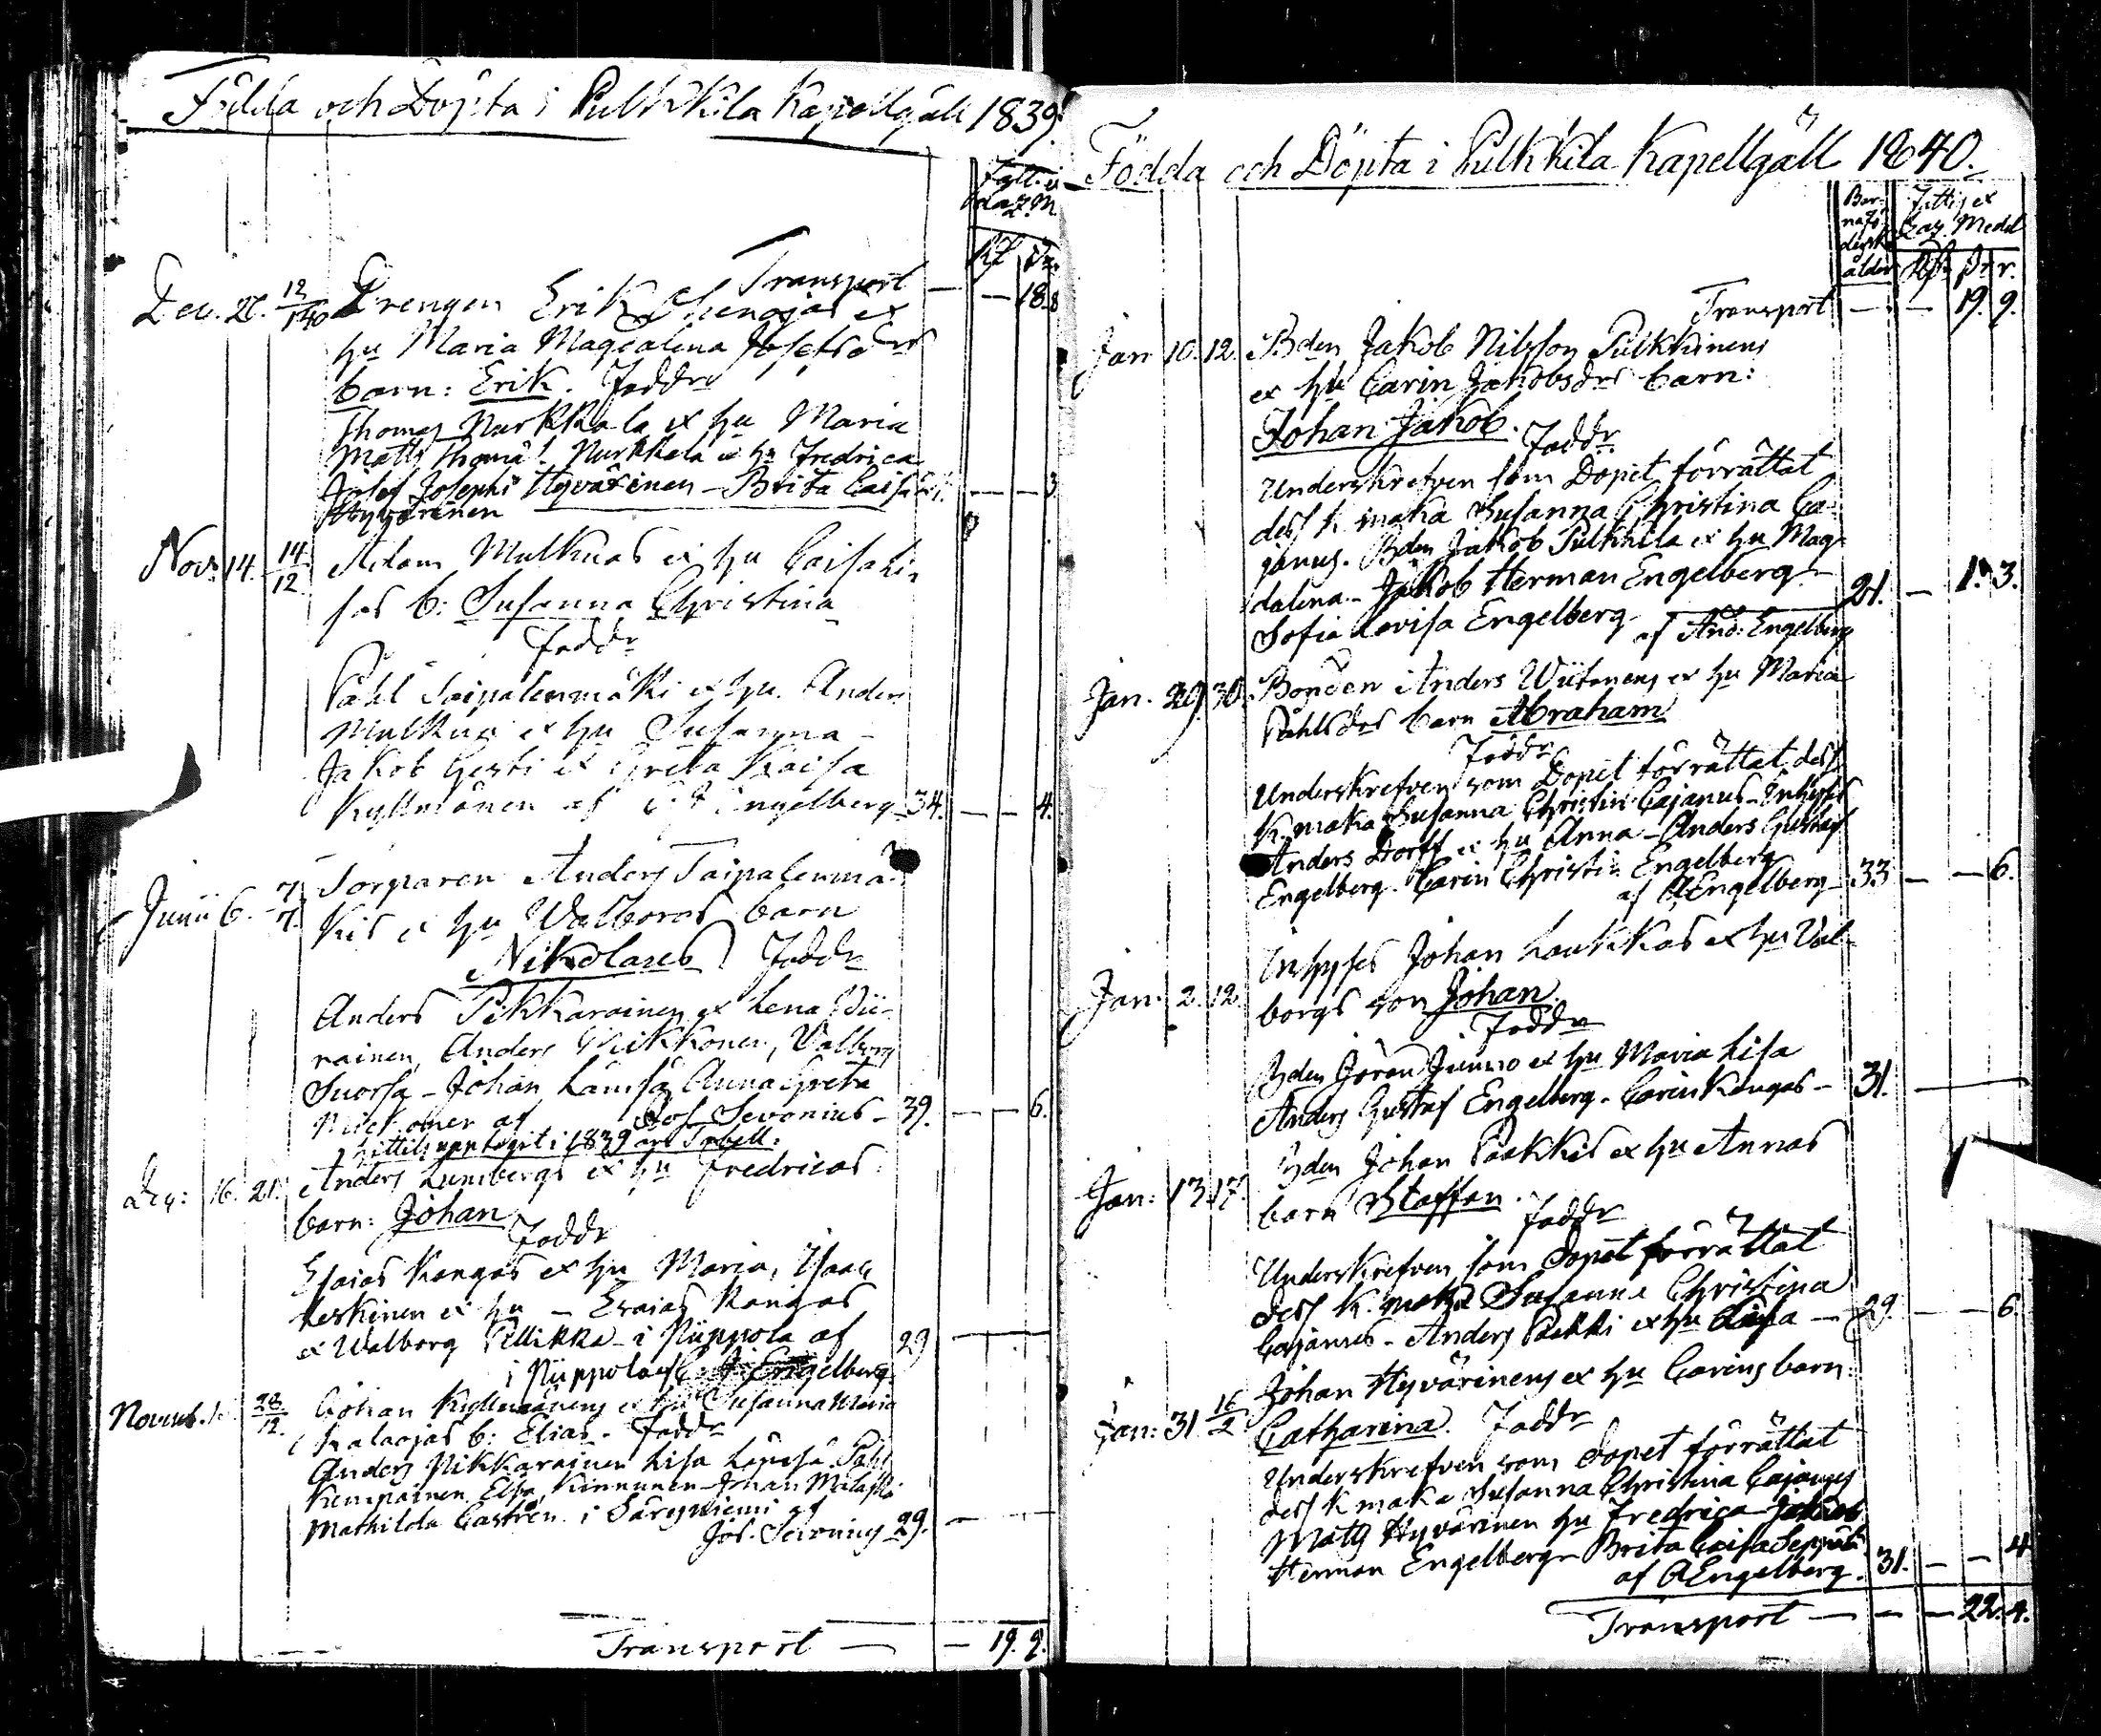 Födda och Döpta i Pulkkila Kapellgäll 1839
Transport — — 18. 8
Dec. 12/1 40 Drengen Erik ex
hu Maria Magdalena Josefsdrs
barn: Erik. Faddr
Thomas Nurkkala ex hu Maria
Matts Thomæ Nurkkala ex hu Fredrica
Josef Josephi Hyvärinen – Brita Caisa — — 3
Hyvärinen
Novr 14. 14/12 Adam Mulkuas ex hu Caisa Li-
sas b: Susanna Christina
Faddr
Påhl Taipalenmäki ex hu. Anders
Mulkua ex hu Susanna –
Jakob Gesti ex Greta Kaisa
Kyllmänen af Engelberg 34. — — 4.
Junii 6. 7/7. Torparen Anders Taipalenmä-
kis ex hu Walborgs barn
Nikolaus Faddr
Anders Pikkarainen ex Lena Pii-
rainen, Anders Mikkonen, Valborg
Suorsa – Johan Lämsä Anna Greta
af Jos. Sevonius – 39. — — 6.
i 1839 ars Tabell.
16. 21. Anders Lundbergs ex hu Fredricas
barn: Johan
Faddr
Esaias Kangas ex hu Maria, Isaac
Keskinen ex hu – Esaias Kangas
ex Walborg Pellikka – i Piippola af 23
i Piippola af Engelberg
Novemb. 28./12. Johan Kyllmänens ex hu Susanna Maria
b: Elias. Faddr
Anders Pikkarainen Lisa Lämsä Påhl
Kemppainen Elsa Kinnunen Johan
Mathilda Castrén i Säresniemi af
Jos. Sevonius 29. —
Transport — — 19. 9.
Födda och Döpta i Pulkkila Kapellgäll 1840.
Bar-
nafö
dersk
ålder
Medel
Transport — — 19. 9.
Jan 10. 12. Bden Jakob Nilsson Pulkkinens
ex hu Carin Jakobsdrs barn:
Johan Jakob.
Faddr
Underskrefven som Dopet förrättat
dess k. maka Susanna Christina Ca-
janus. Bden Jakob Pulkkila ex hu Mag-
dalena – Jakob Herman Engelberg –
Sofia Lovisa Engelberg 21. — 1. 3.
af And: Engelberg
Jan. 29. 30. Bonden Anders Wiitanens ex hu Maria
Påhlsdrs barn Abraham
Faddr
Underskrefven som Dopet förrättat, dess
K. maka Susanna Christin: Cajanus – Inhyses
Anders Dorff ex hu Anna – Anders Gustaf
Engelberg. Carin Christin Engelberg
af AEngelberg – 33 — — 6.
Jan. 2. 12. Inhyses Johan Laukkas ex hu Val-
borgs son Johan
Faddr
Bden Göran Junno ex hu Maria Lisa
Anders Gustaf Engelberg – Carin Kangas – 31. —
Jan: 13. 17. Bden Johan Paakkis ex hu Annas
barn Staffan.
Faddr
Underskrefven som Dopet förrättat
dess K. maka Susanna Christina
Cajanus – Anders Pakki ex hu Caisa — 29. — — 6.
Jan: 31. 16/2 Johan Hyvärinens ex hu Carins barn:
Catharina. Faddr
Underskrefven som Dopet förrättat
dess K maka Susanna Christina Cajanus
Matts Hyvärinen hu Fredrica – Jakob
Herman Engelberg – Brita Caisa Seppälä
af AEngelberg. 31. — — 4
Transport — — — 22. 4.